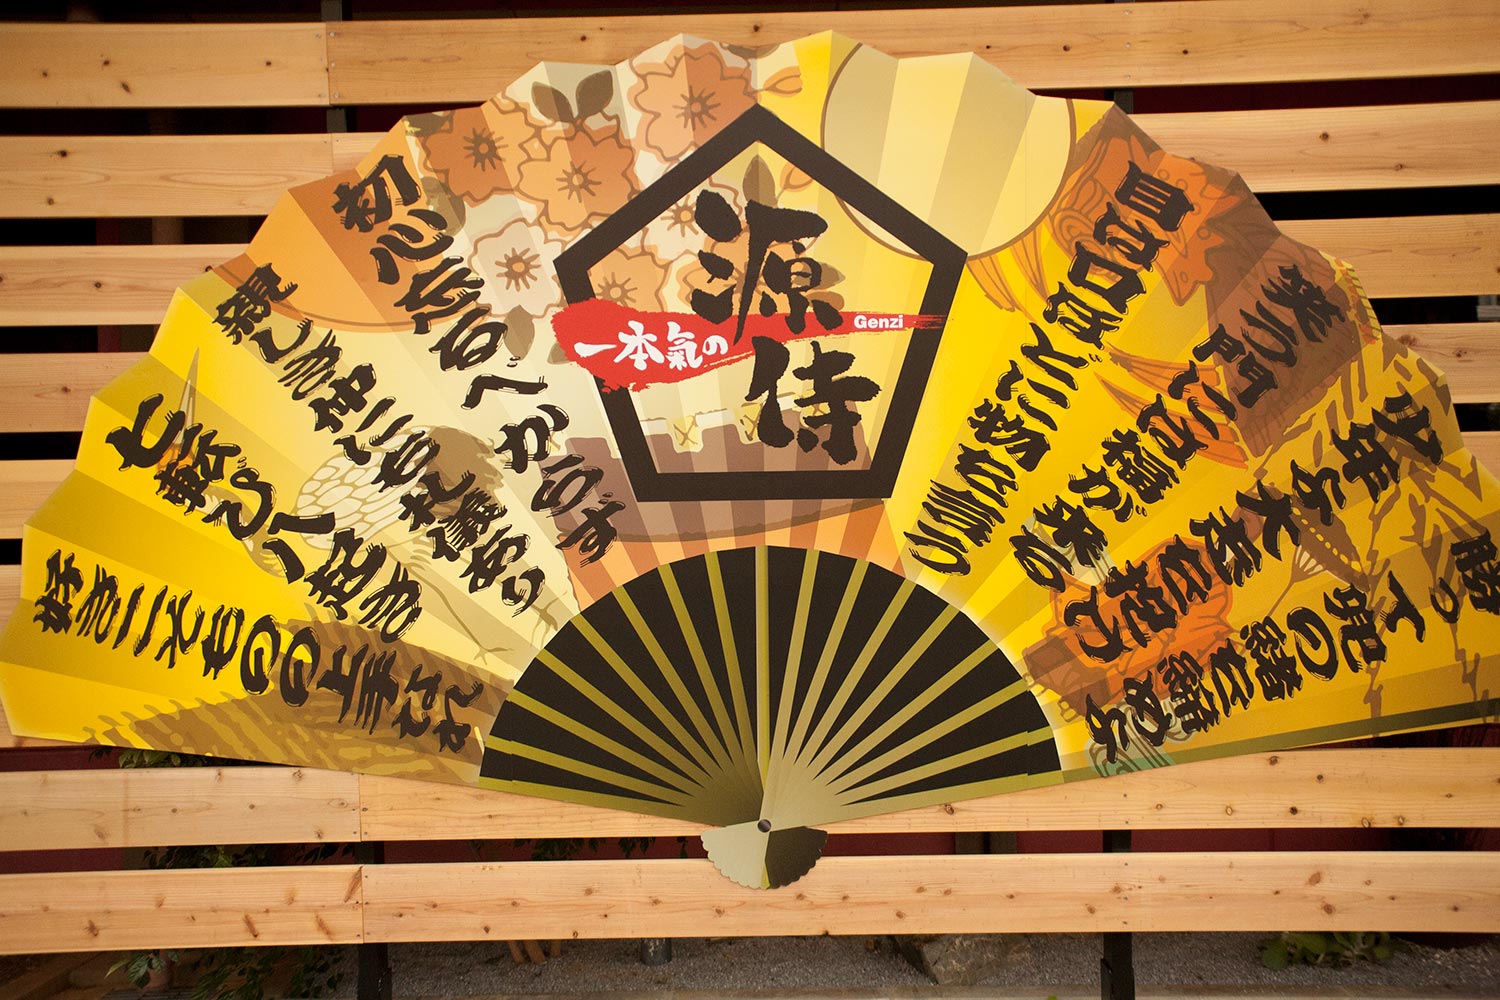 勝って兜の緒を締めよ
少年よ大志を抱け
笑う門には福が来る
目は口ほどに物を言う
源侍
一本氣の
Genzi
初心忘るべからず
親しき中にも礼儀あり
七転び八起き
好きこそものの上手なれ